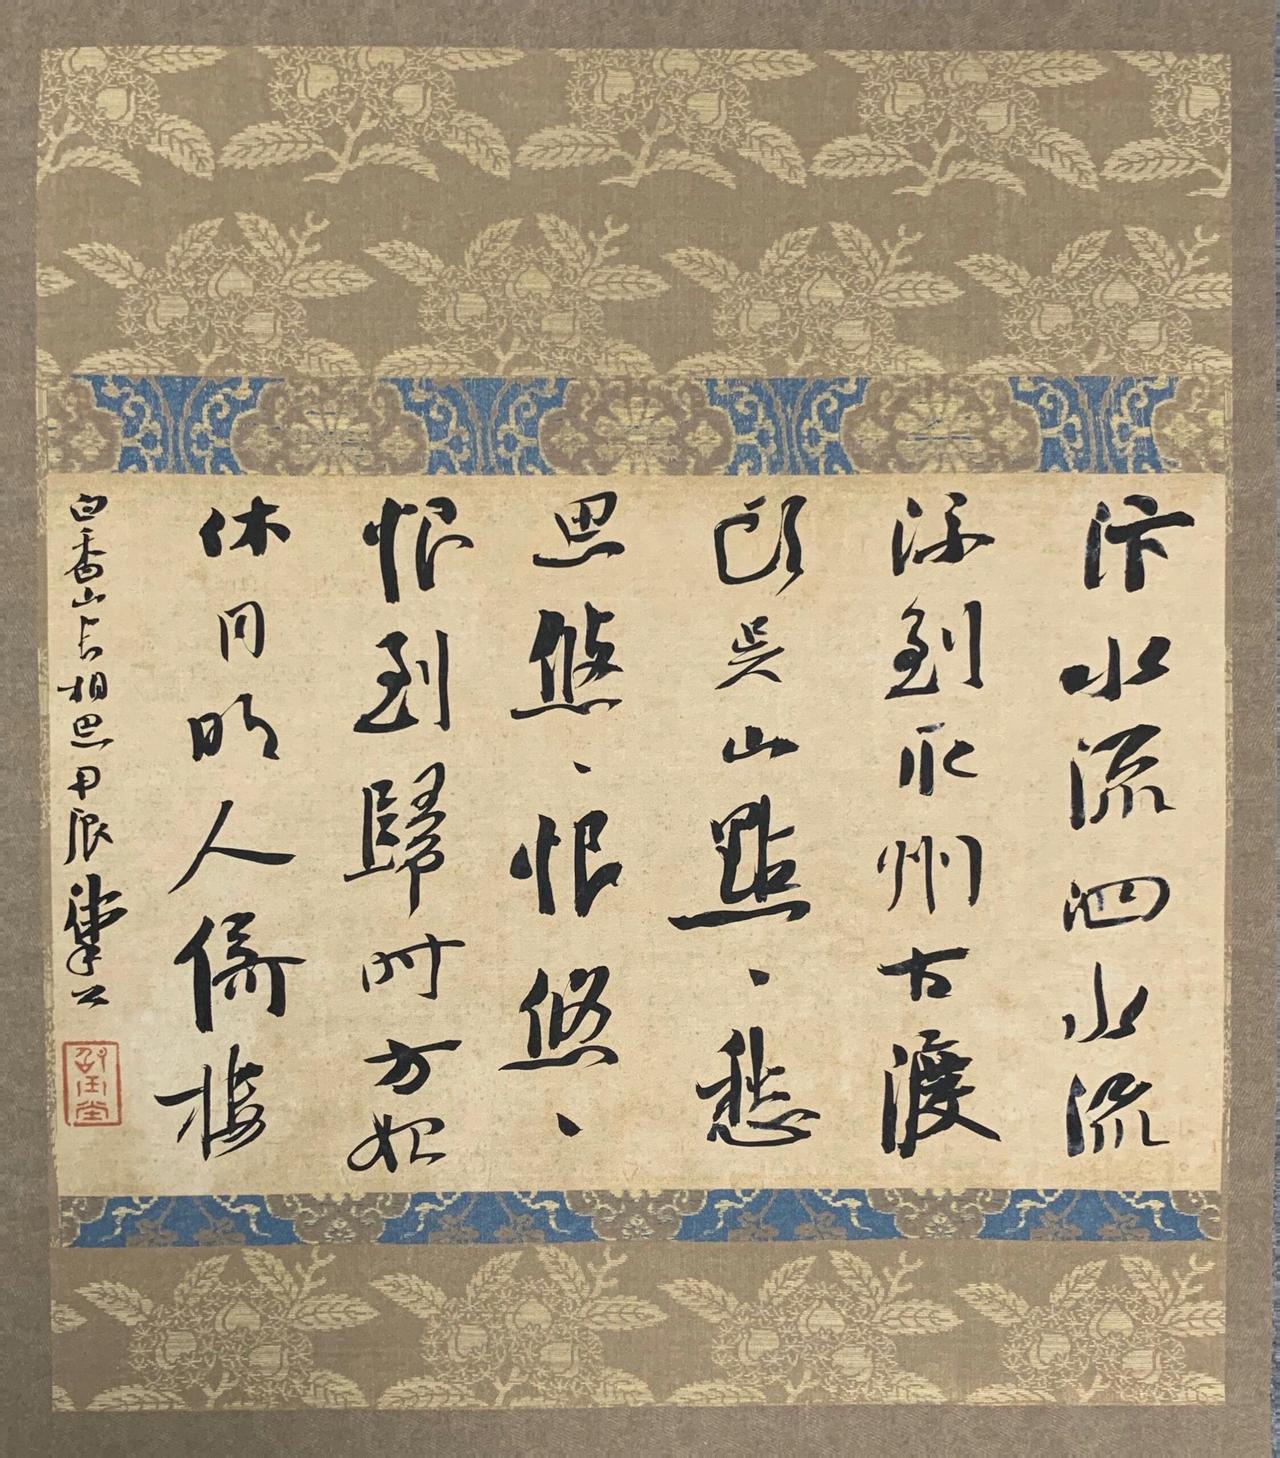 汴水流泗水流
流到瓜州古渡
頭吳山點、愁
思悠、恨悠、
恨到歸時方始
休月明人倚樓
白香山長相思甲辰